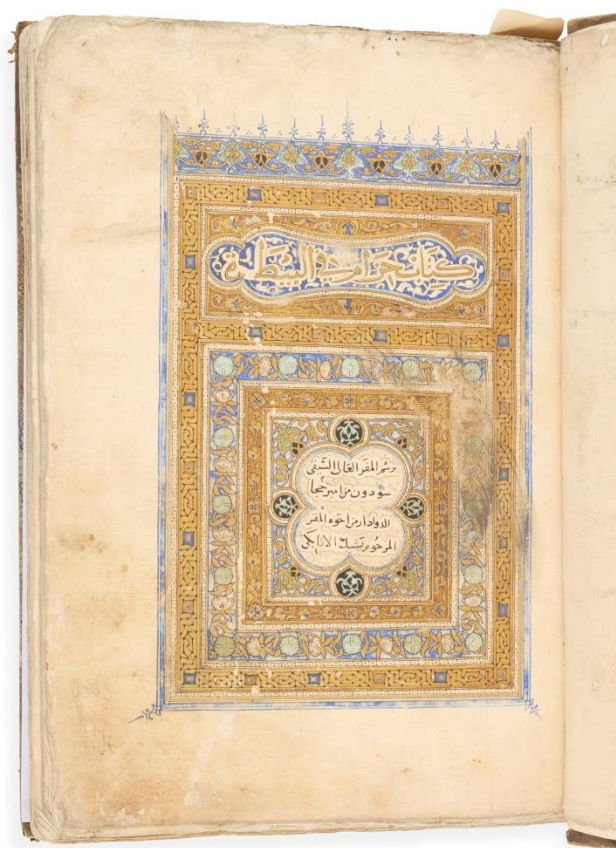 كتاب جرا في البيطرة
برسم المقر العالي السيفي
سودون من امير حجا
الدوادار من اخوه المقر
المرحوم يشبك الاتابكي